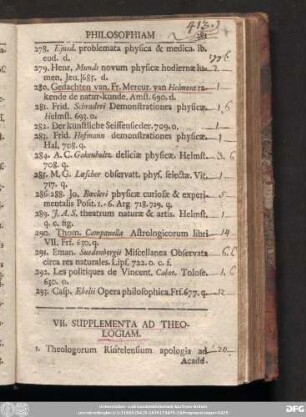 PHILOSOPHIAM
278. Ejusd. problemata physica & medica. ib.
eod. d.
279. Henr, Mundi novum physicæ hodiernæ lu-
men. Jen. 1685. d.
280. Gedachten van. Fr. Mercur. van Helmont ra-
kende de natur-kunde. Amst. 690. d.
281. Frid. Schraderi Demonstrationes physicæ.
Helmst. 693. o.
282. Der künstliche Seiffensieder. 709. o.
283. Frid. Hofmann demonstrationes physicæ.
Hal, 708. q.
284. A. C. deliciæ physicæ. Helmst.
708. q.
285. M. G. Læscher observatt. phys. selectæ. Vit.
717. q.
286-288. Jo. Bæcleri physicæ curiosæ & experi-
mentalis Posit. 1.-6. Arg. 718. 729. q.
289. J. A. S. theatrum naturæ & artis. Helmst.
q. c. fig.
290. Thom. Campanella Astrologicorum libri
VII. Frf. 630. q.
291. Eman. Suedenborgii Miscellanea Observata
circa res naturales. Lips. 722. o. c. f.
292. Les politiques de Vincent. Cabot. Tolose.
630. o.
293. Casp. Ebelii Opera philosophica. Frf. 677. q.
VII. SUPPLEMENTA AD THEO-
LOGIAM.
1. Theologorum Rintelensium apologia ad
Acadd.